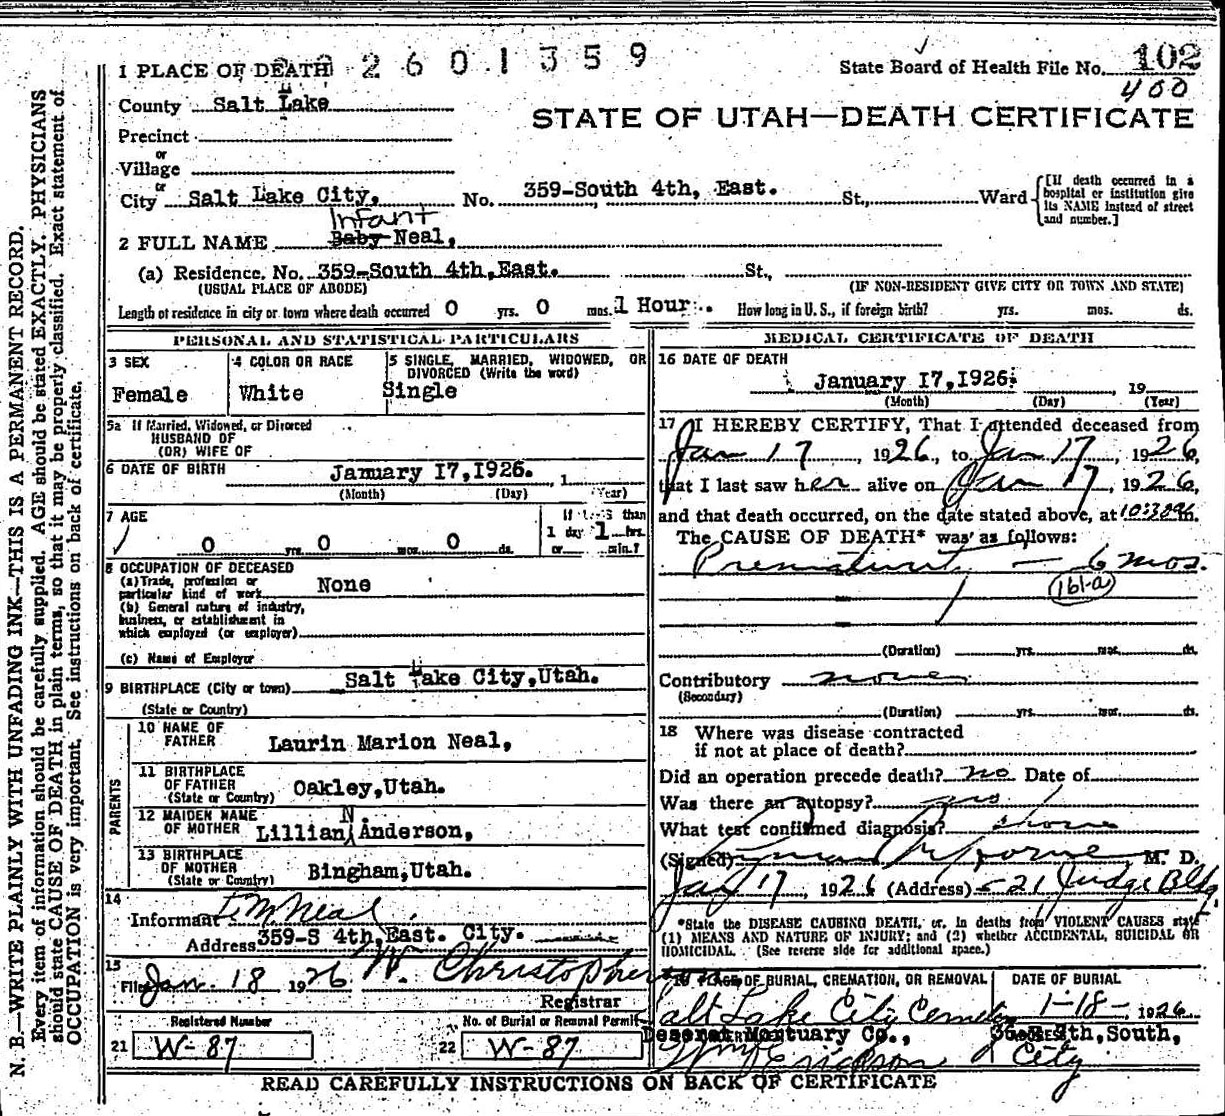 N. B.—WRITE PLAINLY WITH UNFADING INK—THIS IS A PERMANENT RECORD.
Every item of information should be carefully supplied. AGE should be stated EXACTLY. PHYSICIANS
should state CAUSE OF DEATH in plain terms, so that it may be properly classified. Exact statement of
OCCUPATION is very important. See instructions on back of certificate.
2601359
1 PLACE OF DEATH
State Board of Health File No. 102
400
County Salt Lake
STATE OF UTAH—DEATH CERTIFICATE
Precinct
or
Village
or
City Salt Lake City, No. 359-South 4th, East. St., Ward
[If death occurred in a
hospital or institution give
its NAME instead of street
and number.]
Infant
2 FULL NAME Baby Neal,
(a) Residence. No. 359-South 4th, East. St.,
(USUAL PLACE OF ABODE) (IF NON-RESIDENT GIVE CITY OR TOWN AND STATE)
Length of residence in city or town where death occurred 0 yrs. 0 mos. 1 Hour. How long in U. S., if foreign birth? yrs. mos. ds.
PERSONAL AND STATISTICAL PARTICULARS
3 SEX
Female
4 COLOR OR RACE
White
5 SINGLE, MARRIED, WIDOWED, OR
DIVORCED (Write the word)
Single
5a If Married, Widowed, or Divorced
HUSBAND OF
(OR) WIFE OF
6 DATE OF BIRTH January 17, 1926. 1
(Month) (Day) (Year)
7 AGE
0 yrs. 0 mos. 0 ds.
If LESS than
1 day 1 hrs.
or min.?
8 OCCUPATION OF DECEASED
(a) Trade, profession or
particular kind of work None
(b) General nature of industry,
business, or establishment in
which employed (or employer)
(c) Name of Employer
9 BIRTHPLACE (City or town) Salt Lake City, Utah.
(State or Country)
PARENTS
10 NAME OF
FATHER Laurin Marion Neal,
11 BIRTHPLACE
OF FATHER
(State or Country) Oakley, Utah.
12 MAIDEN NAME
OF MOTHER Lillian N. Anderson,
13 BIRTHPLACE
OF MOTHER
(State or Country) Bingham, Utah.
14
Informant L. M. Neal
Address 359-S 4th, East. City.
15
Filed Jan. 18 1926 W. Christopherson
Registrar
Registered Number
21 W-87
No. of Burial or Removal Permit
22 W-87
MEDICAL CERTIFICATE OF DEATH
16 DATE OF DEATH
January 17, 1926. 19
(Month) (Day) (Year)
17 I HEREBY CERTIFY, That I attended deceased from
Jan 17, 1926, to Jan 17, 1926,
that I last saw her alive on Jan 17, 1926,
and that death occurred, on the date stated above, at 10:30 m.
The CAUSE OF DEATH* was as follows:
Prematurity — 6 mos.
161-a
(Duration) yrs. mos. ds.
Contributory none
(Secondary)
(Duration) yrs. mos. ds.
18 Where was disease contracted
if not at place of death?
Did an operation precede death? no Date of
Was there an autopsy? no
What test confirmed diagnosis?
(Signed) M. D.
Jan 17, 1926 (Address) 521 Judge Bldg,
*State the DISEASE CAUSING DEATH, or, in deaths from VIOLENT CAUSES state
(1) MEANS AND NATURE OF INJURY; and (2) whether ACCIDENTAL, SUICIDAL OR
HOMICIDAL. (See reverse side for additional space.)
19 PLACE OF BURIAL, CREMATION, OR REMOVAL
Salt Lake City Cemetery
DATE OF BURIAL
1-18-, 1926
Deseret Mortuary Co., South,
Erickson City
READ CAREFULLY INSTRUCTIONS ON BACK OF CERTIFICATE